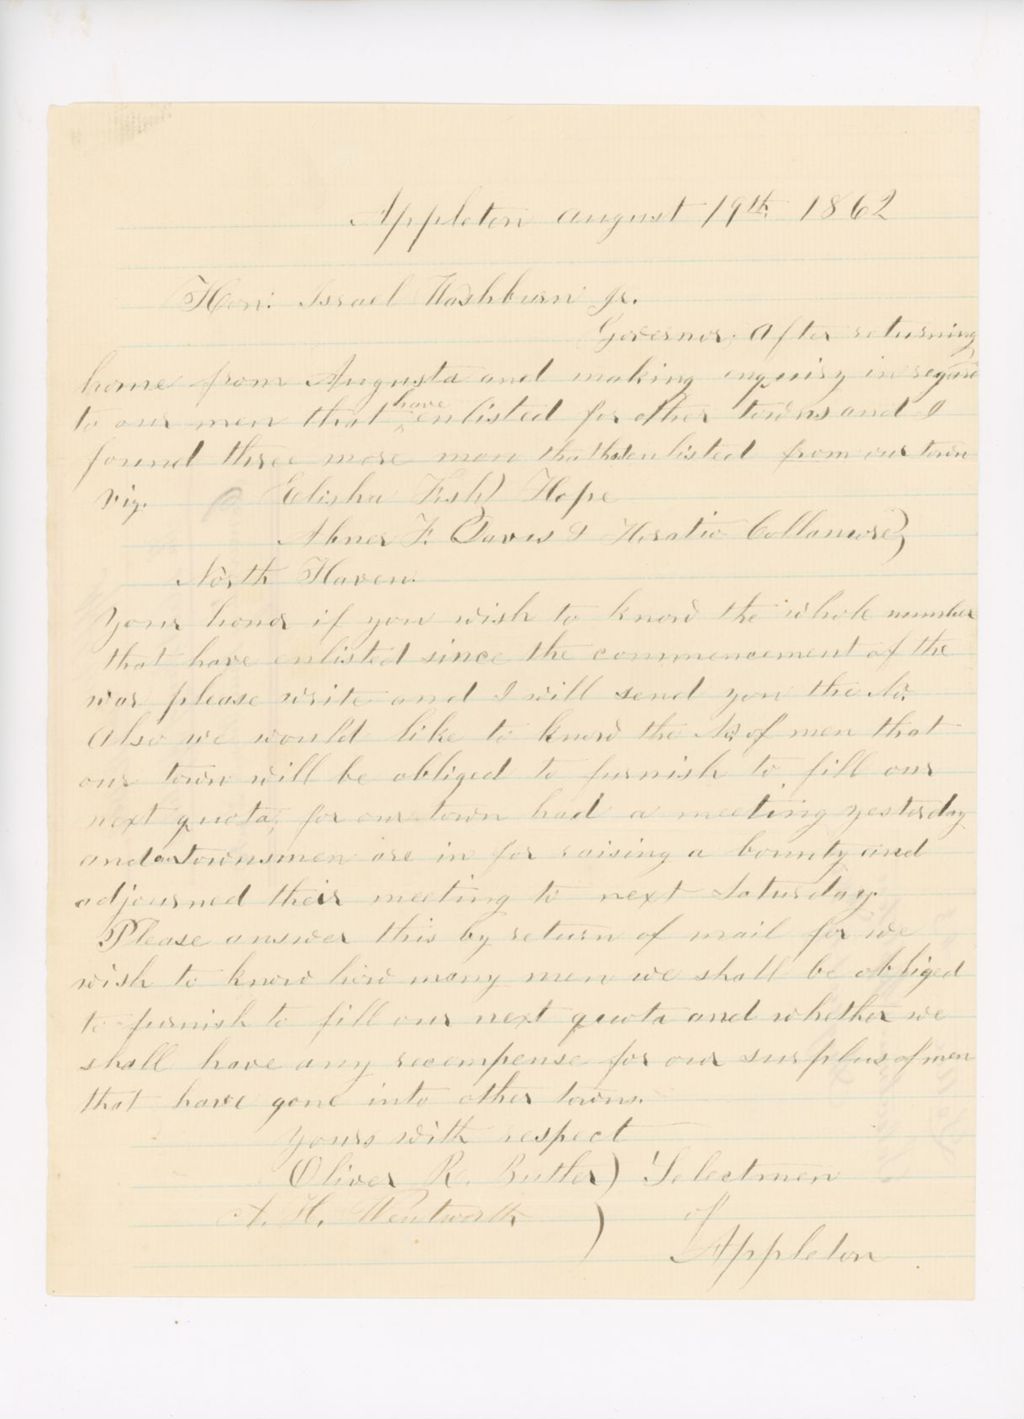 Appleton august 19th 1862
Hon. Israel Washburn Jr.
Governor, After returning
home from Augusta and making inquiry in regard
to our men that have enlisted for other towns and I
found three more men that enlisted from our town
viz. Elisha Fish) Hope
Abner F. Davis & Horatio Collamore)
North Haven.
Your honor if you wish to know the whole number
that have enlisted since the commencement of the
war please write and I will send you the No.
Also we would like to know the No. of men that
our town will be obliged to furnish to fill our
next quota, for our town had a meeting yesterday
and our townsmen are in for raising a bounty and
adjourned their meeting to next Saturday.
Please answer this by return of mail for we
wish to know how many men we shall be obliged
to furnish to fill our next quota and whether we
shall have any recompense for our surplus of men
that have gone into other towns.
Yours with respect
Oliver R. Butler) Selectmen
A. H. Wentworth ) of
Appleton